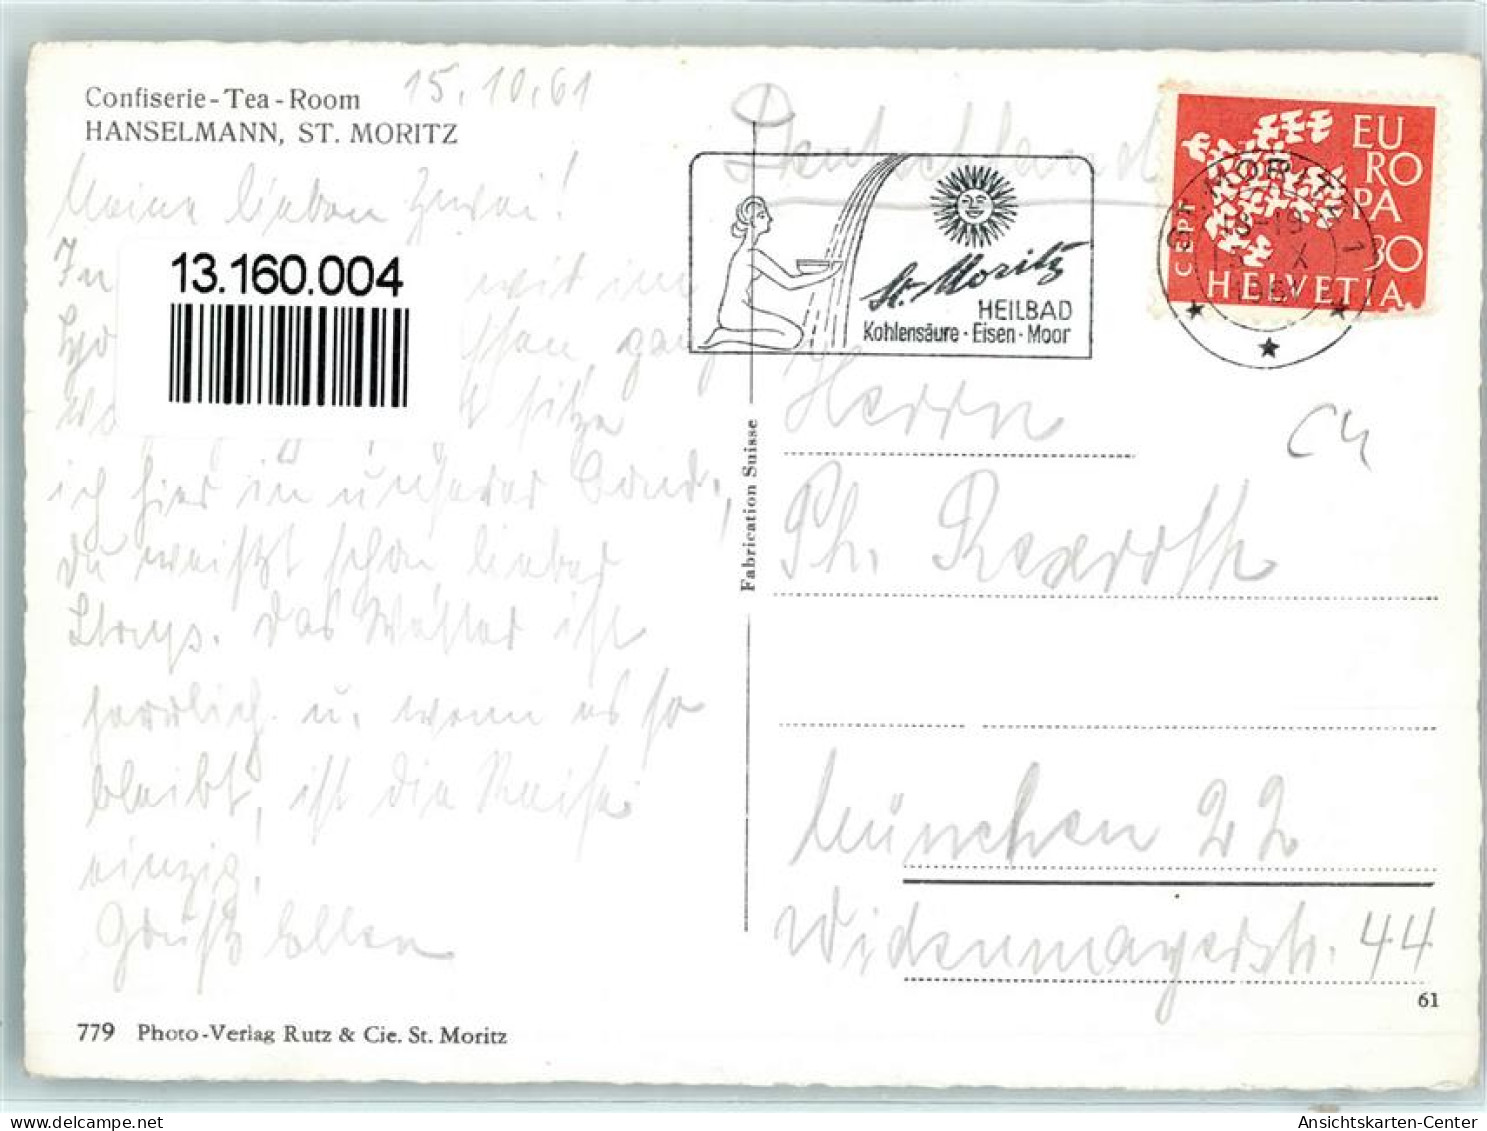 Confiserie-Tea-Room
HANSELMANN, ST. MORITZ
15.10.61
Meine lieben Zwei!
13.160.004
In
mit im
ganz
sitze
ich hier in unserer Cond.,
du weißt schon lieber
Das Wetter ist
herrlich u. wenn es so
bleibt, ist die Reise
einzig.
Gruß Ellen
779 Photo-Verlag Rutz & Cie. St. Moritz
Fabrication Suisse
Deutschland
St. Moritz
HEILBAD
Kohlensäure · Eisen · Moor
EU
RO
PA
CEPT
30
HELVETIA
ST. MORITZ 1
18-19
X
Herrn
Ph. Rexroth
München 22
Widenmayerstr. 44
61
Ansichtskarten-Center